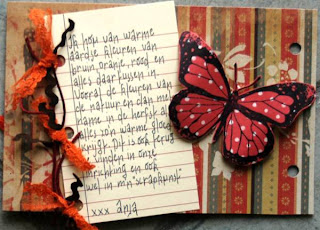 Ik hou van warme
aardse kleuren van
bruin, oranje, rood en
alles daar tussen in
Vooral de kleuren van
de natuur en dan met
name in de herfst als
alles zo'n warme gloed
krijgt. Dit is ook terug
te vinden in onze
inrichting en ook
wel in mijn "scrapkunst"
xxx Anja